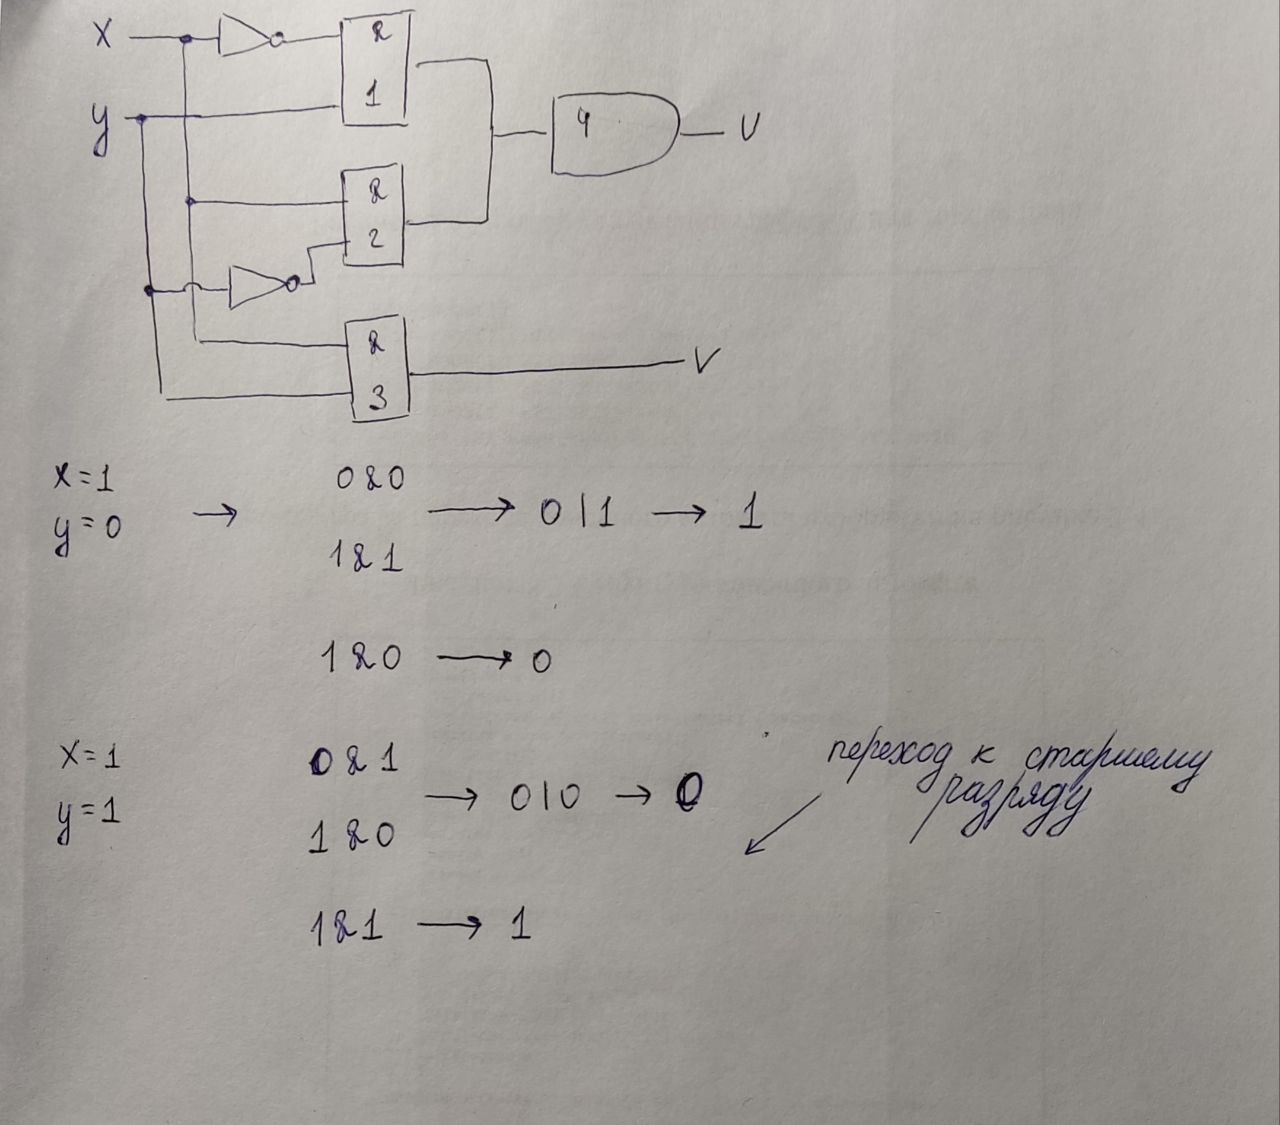 x
&
1
y
4
U
&
2
&
V
3
x=1
y=0
→
0&0
1&1
→ 0|1 → 1
1&0 → 0
x=1
y=1
0&1
1&0
→ 0|0 → 0
переход к старшему
разряду
1&1 → 1